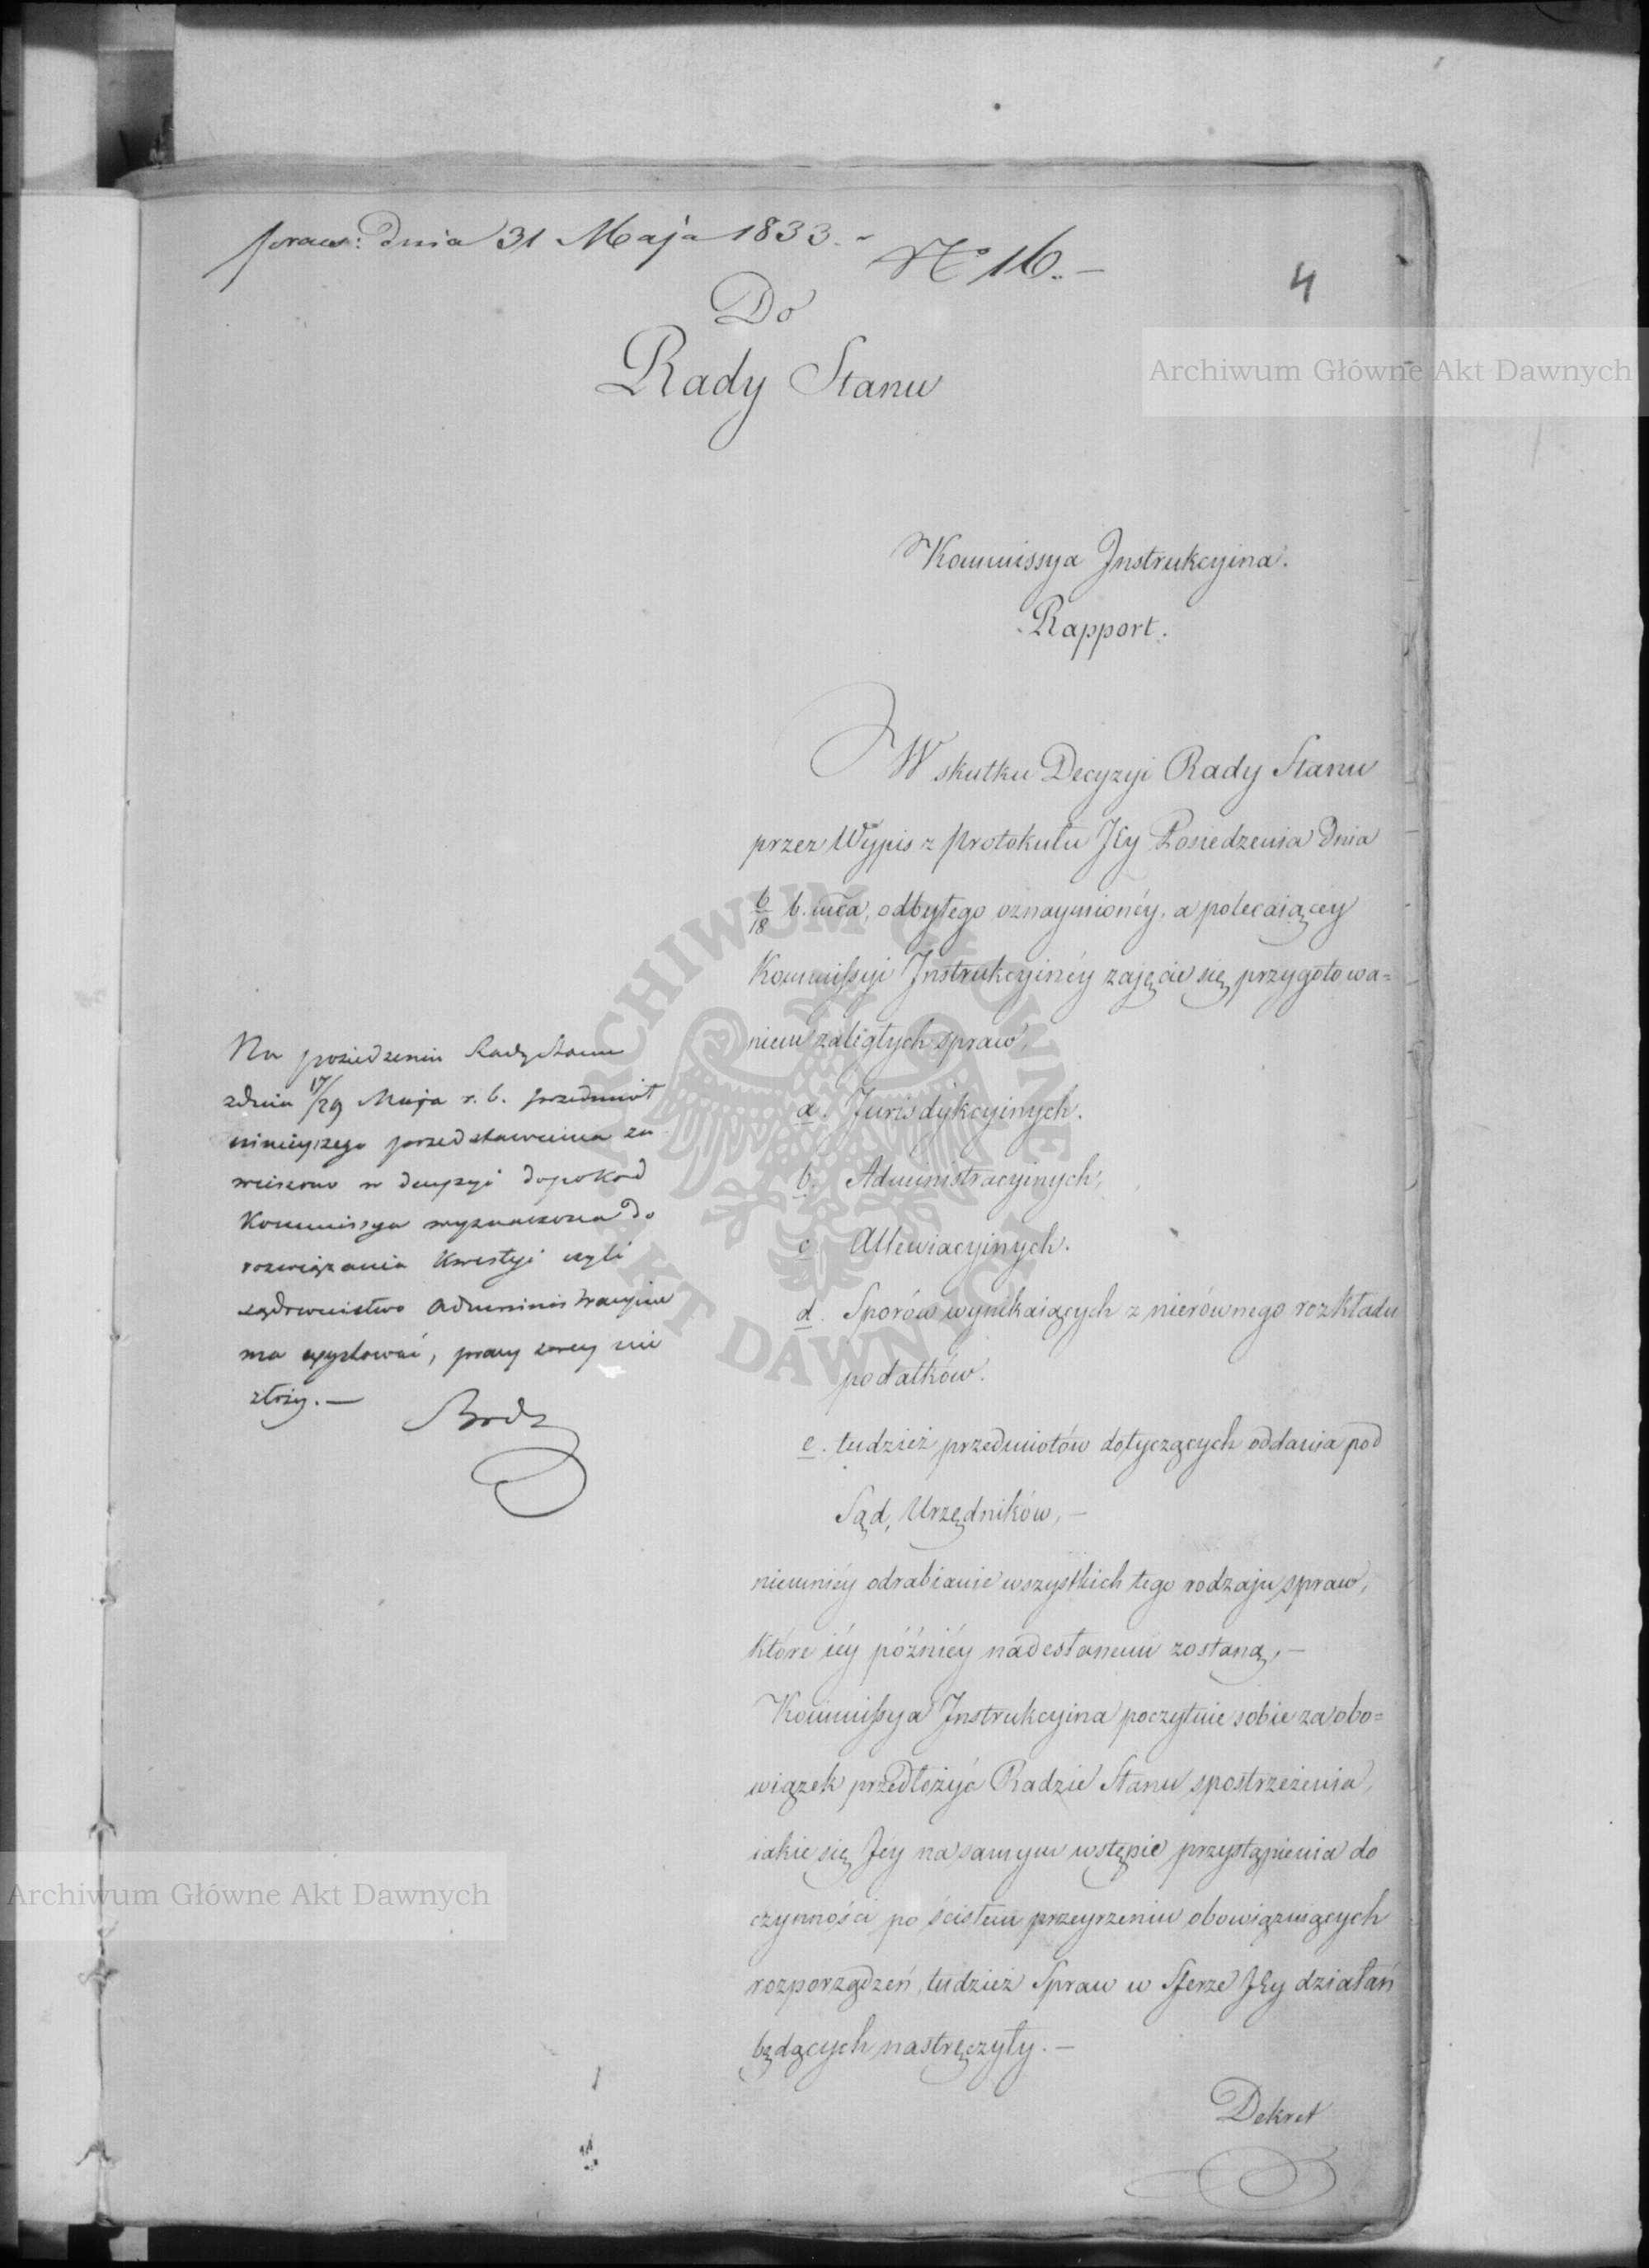 praes: Dnia 31 Maja 1833. -
No 16. -
4
Do
Rady Stanu
Kommissya Instrukcyina.
Rapport.
W skutku Decyzyi Rady Stanu
przez Wypis z Protokułu Jéy Posiedzenia dnia
6/18 b. mca, odbytego oznaymionéy, a polecaiącéy
Kommissyi Instrukcyinéy zajęcie się przygotowa=
niem zaległych spraw,
a. Jurisdykcyinych.
b. Administracyinych,
c. Allewiacyinych.
d. Sporów wynikaiących z nierównego rozkładu
podatków.
e. tudzież przedmiotów dotyczących oddania pod
Sąd, Urzędników, -
niemniéy odrabianie wszystkich tego rodzaju spraw,
które iéy późniéy nadesłanemi zostaną, -
Kommissya Instrukcyina poczytuie sobie za obo=
wiązek przedłożyć Radzie Stanu spostrzeżenia,
iakie się Jéy na samym wstępie przystąpienia do
czynności po ścisłem przeyrzeniu obowiązuiących
rozporządzeń, tudzież Spraw w Sferze Jéy działań
będących nastręczyły. -
Dekret
Na posiedzeniu Rady Stanu
z dnia 17/29 Maja r. b. przedmiot
ninieyszego przedstawienia za
wieszono w decyzyi dopokąd
Kommissya wyznaczona do
rozwiązania kwestyi czyli
sądownictwo administracyine
ma exystować, pracy swey nie
złoży. -
Archiwum Główne Akt Dawnych
Archiwum Główne Akt Dawnych
ARCHIWUM GŁÓWNE AKT DAWNYCH